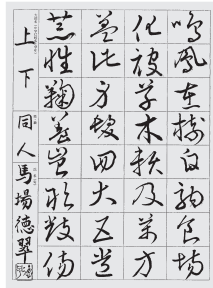 鳴鳳在樹白駒食場
化被草木賴及萬方
蓋此身髮四大五常
恭惟鞠養豈敢毀傷
上下 同人馬場德翠